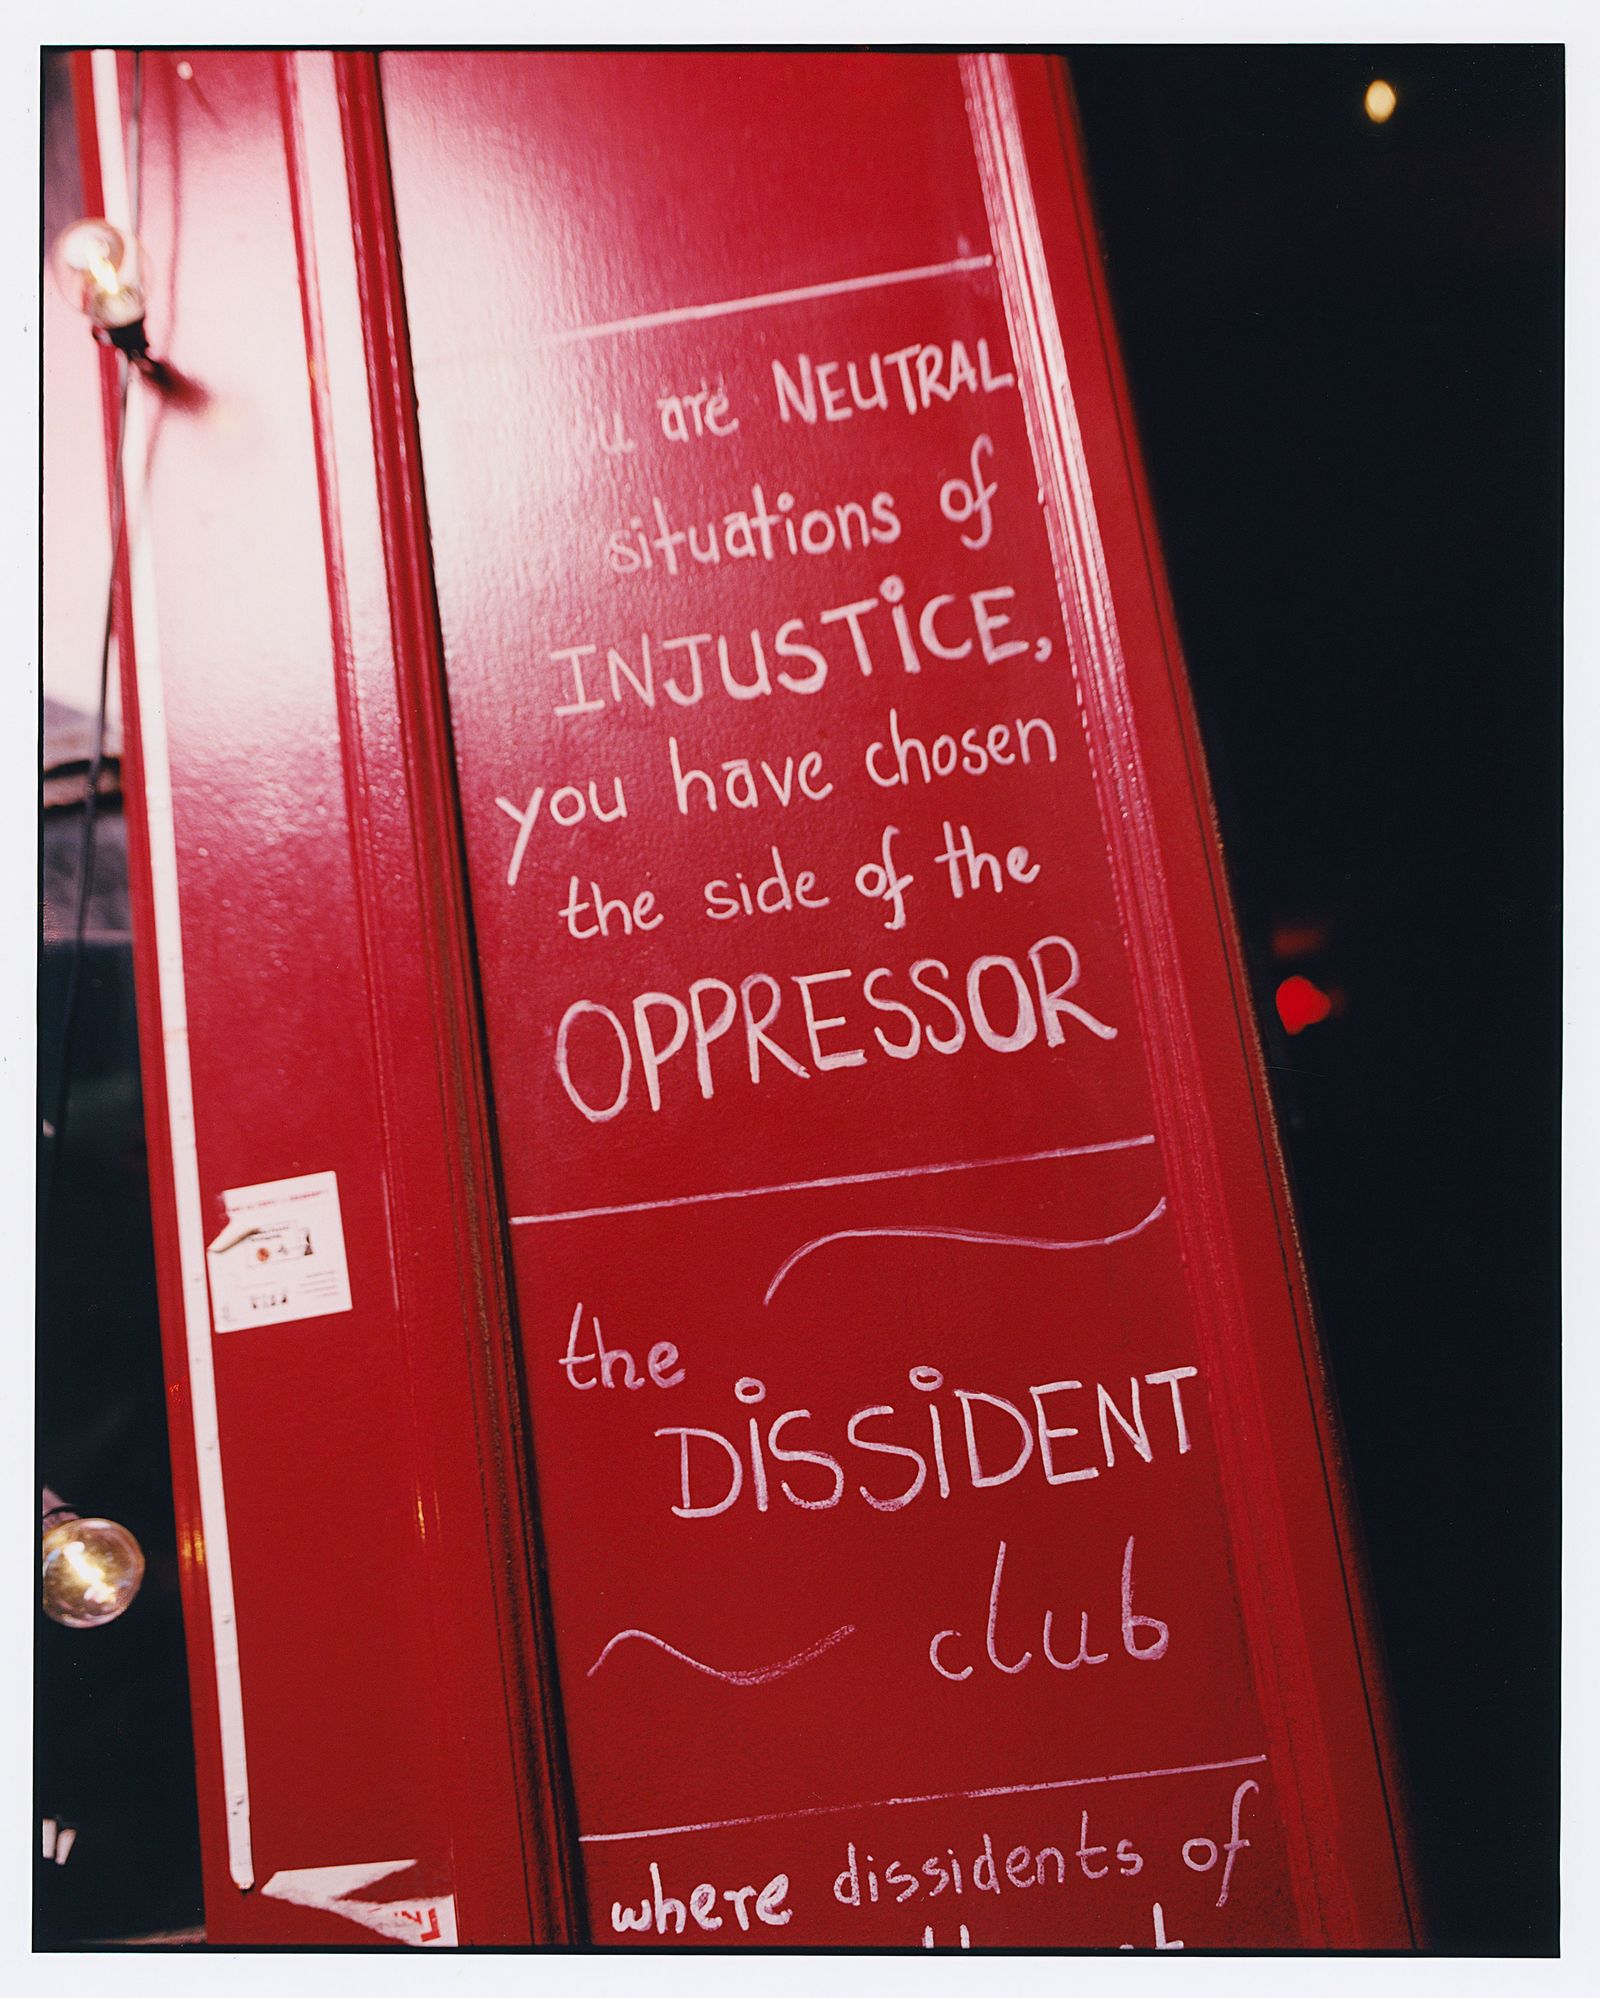 u are NEUTRAL
situations of
INJUSTICE,
you have chosen
the side of the
OPPRESSOR
the
DISSIDENT
club
where dissidents of